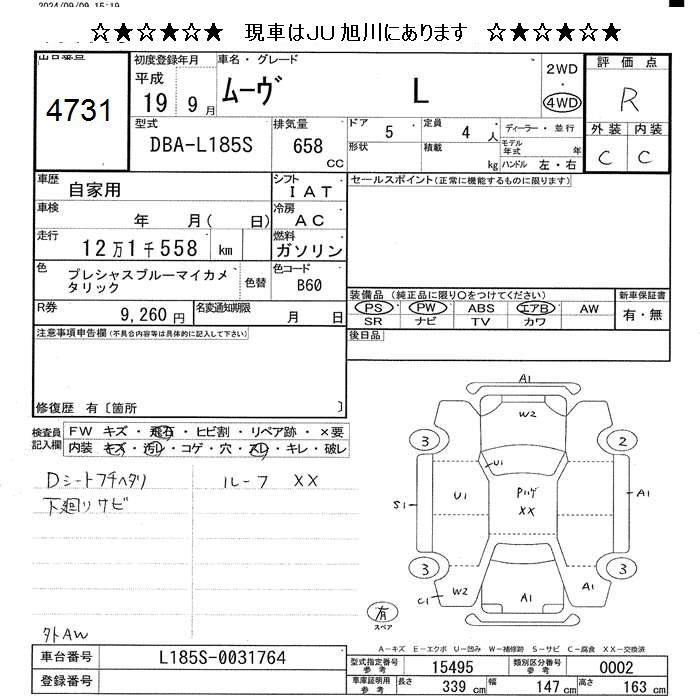 2024/09/09 15:19
☆★☆★☆★ 現車はJU旭川にあります ☆★☆★☆★
出品番号
4731
初度登録年月
平成
19 9月
車名・グレード
ムーヴ L
2WD
・
4WD
評価点
R
外装 内装
C C
型式
DBA-L185S
排気量
658
CC
ドア 5
定員 4 人
形状
積載 kg
ディーラー・並行
モデル年式 年
ハンドル 左・右
車歴
自家用
シフト
IAT
車検
年 月( 日)
冷房
AC
走行
12万1千558 km
燃料
ガソリン
色
プレシャスブルーマイカメタリック
色替
色コード
B60
R券
9,260円
名変通知期限
月 日
セールスポイント(正常に機能するものに限ります)
装備品 (純正品に限り○をつけてください)
PS PW ABS エアB AW
SR ナビ TV カワ
新車保証書
有・無
後日品
注意事項申告欄(不具合内容等は具体的に記入して下さい)
修復歴 有〔箇所 〕
検査員記入欄
FW キズ・飛石・ヒビ割・リペア跡・×要
内装 キズ・汚レ・コゲ・穴・スレ・キレ・破レ
Dシートフチヘタリ
下廻りサビ
ルーフ XX
外AW
A1
W2
3
2
U1
U1
Pハゲ
XX
S1
A1
3
3
W2
C1
A1
A1
有
スペア
A-キズ E-エクボ U-凹み W-補修跡 S-サビ C-腐食 XX-交換済
車台番号
L185S-0031764
登録番号
型式指定番号
参考
15495
類別区分番号
参考
0002
車庫証明用
参考
長さ 339 cm
幅 147 cm
高さ 163 cm